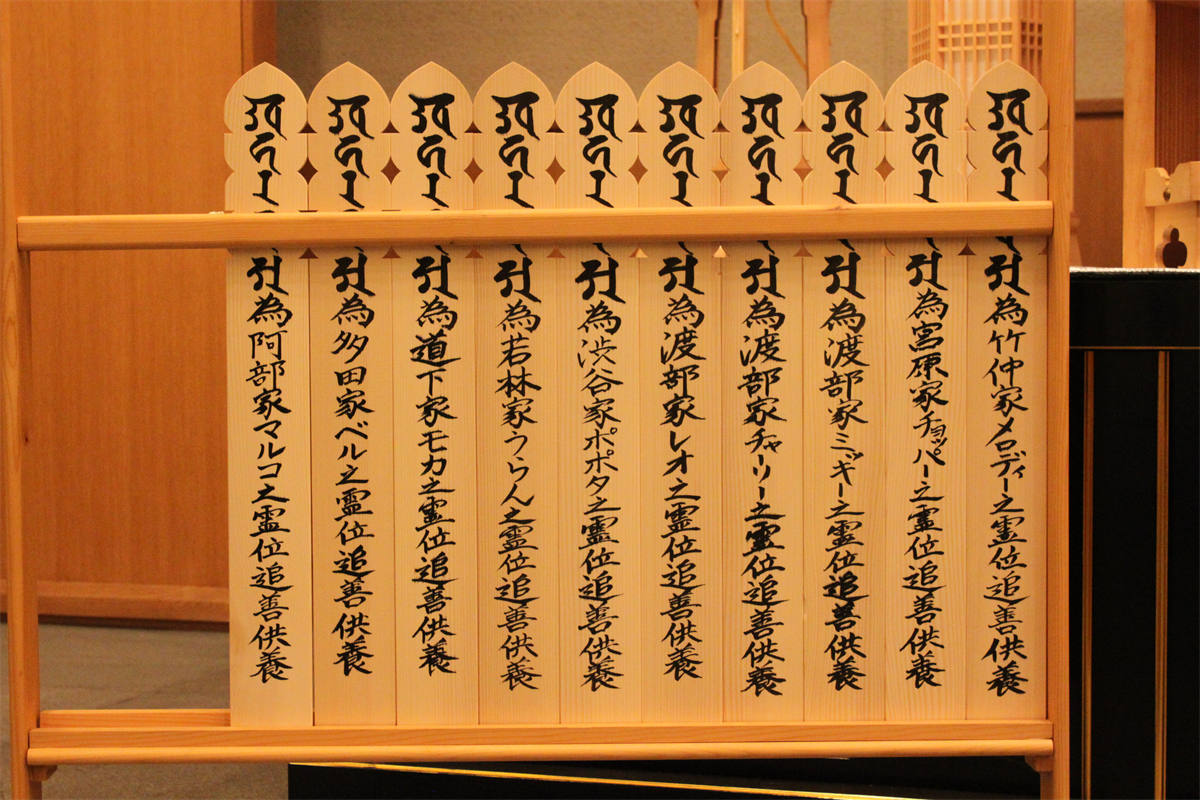 為竹仲家メロディー之霊位追善供養
為宮原家チョッパー之霊位追善供養
為渡部家ミッキー之霊位追善供養
為渡部家チャーリー之霊位追善供養
為渡部家レオ之霊位追善供養
為渋谷家ポポタ之霊位追善供養
為若林家うらん之霊位追善供養
為道下家モカ之霊位追善供養
為多田家ベル之霊位追善供養
為阿部家マルコ之霊位追善供養